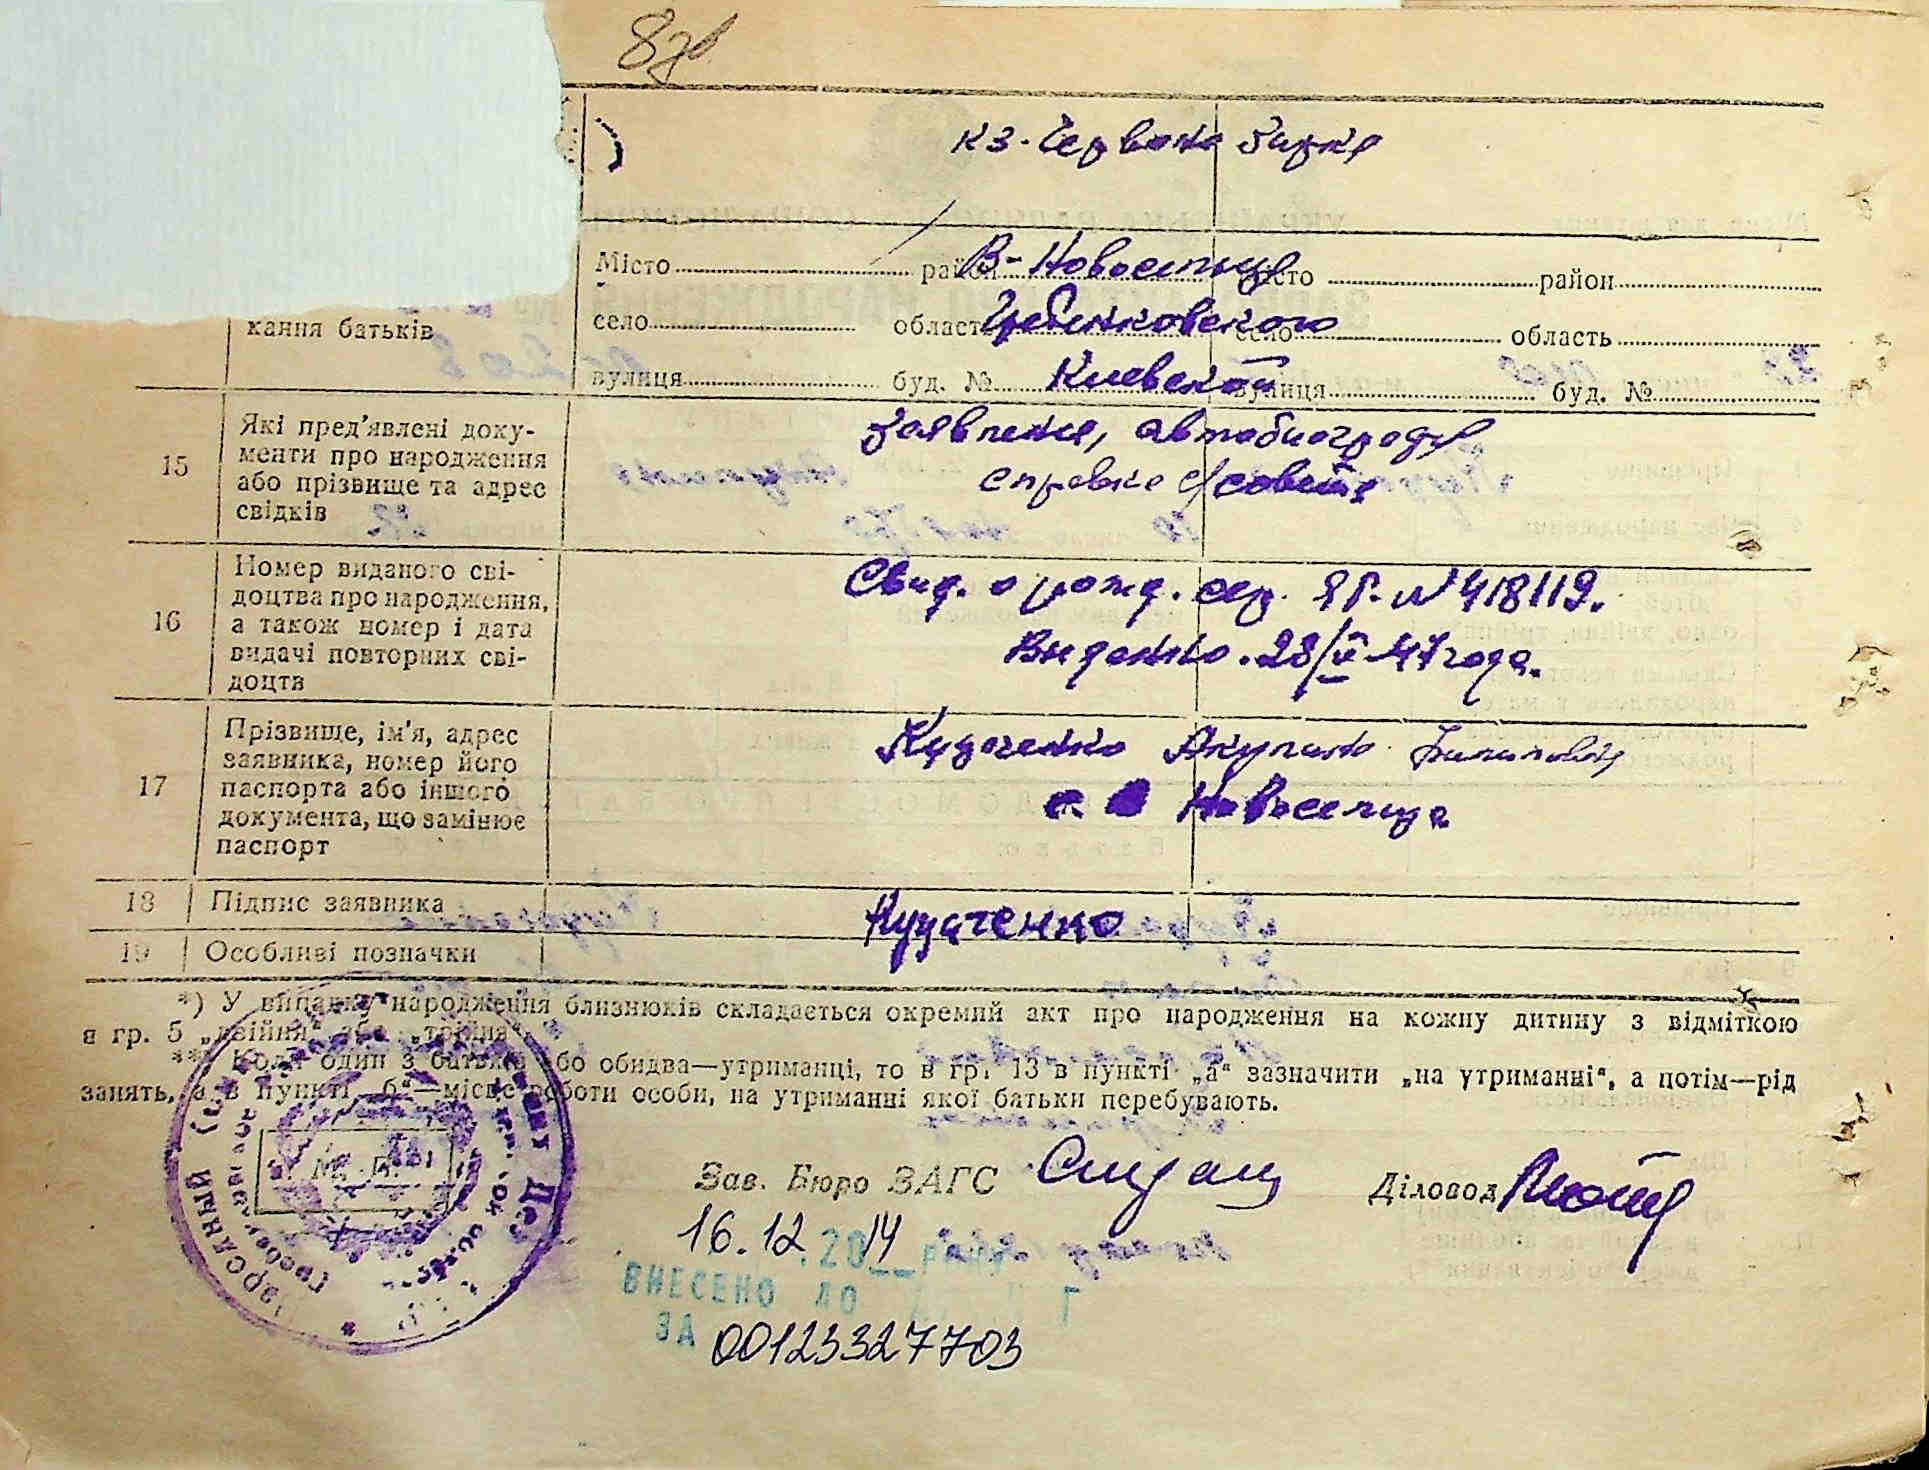 кз. Червона Зирка
Місто район В-Новоселица місто район
село область Гребенковского село область
кання батьків
вулиця буд. № Киевской вулиця буд. №
15 Які пред'явлені доку-
менти про народження
або прізвище та адрес
свідків
заявление, автобиография
справка с/совета
16 Номер виданого сві-
доцтва про народження,
а також номер і дата
видачі повторних сві-
доцтв
Свид. о рожд. сер. ЯГ. № 418119.
Выданно. 28/V 47 года.
17 Прізвище, ім'я, адрес
заявника, номер його
паспорта або іншого
документа, що замінює
паспорт
Кудоченко Акулина
с. Новоселица
18 Підпис заявника
19 Особливі позначки
*) У випадку народження близнюків складається окремий акт про народження на кожну дитину з відміткою
в гр. 5 „двійня" або „трійня".
**) Коли один з батьків або обидва—утриманці, то в гр. 13 в пункті „а" зазначити „на утриманні", а потім—рід
занять, а в пункті „б"—місце роботи особи, на утриманні якої батьки перебувають.
Зав. Бюро ЗАГС
Діловод
16.12.2014 року
ВНЕСЕНО ДО
ЗА 00123327703